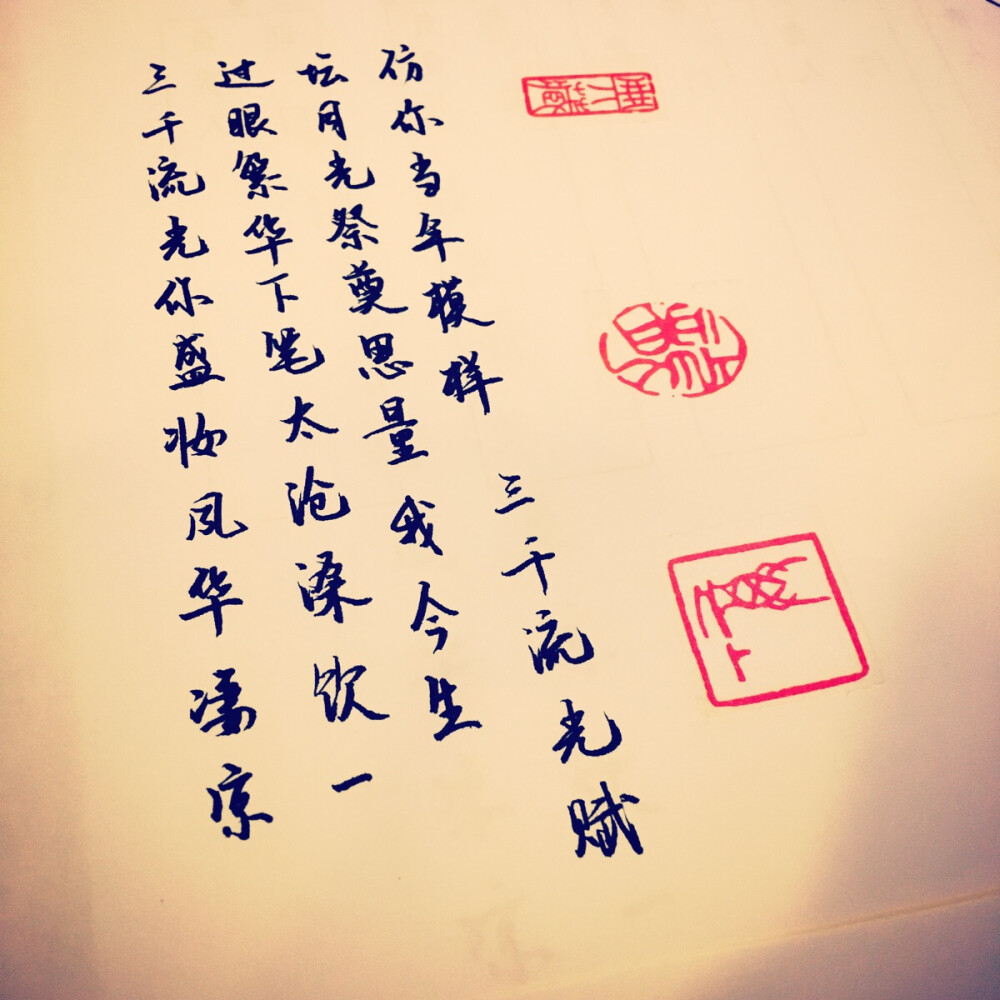 三千流光你盛妆风华凉
过眼繁华下笔太沧饮一
坛月光祭奠思量我今生
仿你当年模样
三千流光赋